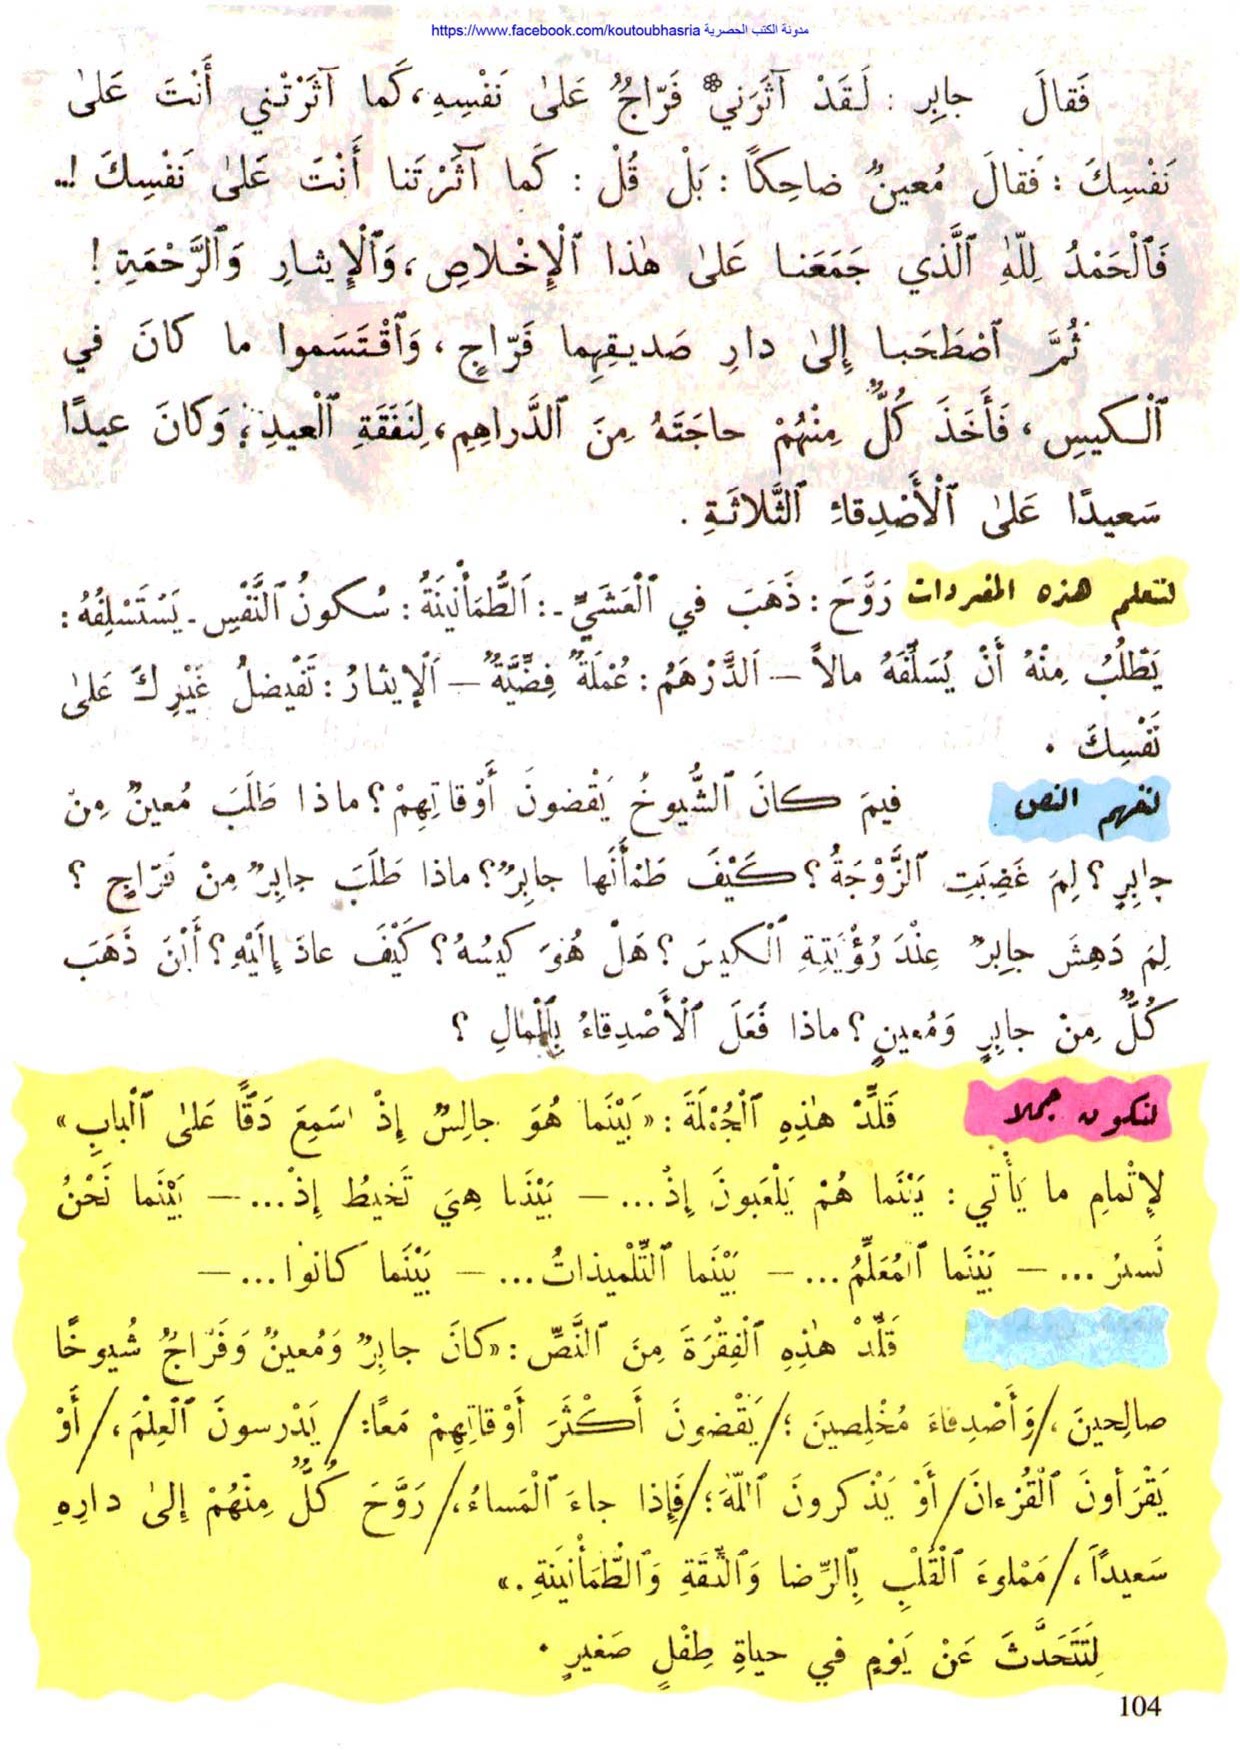 https://www.facebook.com/koutoubhasria مدونة الكتب الحصرية
فَقالَ جابِر : لَقَدْ آثَرَني فَرّاجٌ عَلىٰ نَفْسِهِ، كَما آثَرْتَني أَنْتَ عَلىٰ
نَفْسِكَ : فَقالَ مُعينٌ ضاحِكًا : بَلْ قُلْ : كَما آثَرْتَنا أَنْتَ عَلىٰ نَفْسِكَ !..
فَٱلْحَمْدُ لِلّٰهِ ٱلَّذي جَمَعَنا عَلىٰ هٰذا ٱلْإِخْلاصِ، وَٱلْإِيثارِ وَٱلرَّحْمَةِ !
ثُمَّ ٱصْطَحَبا إِلىٰ دارِ صَديقِهِما فَرّاجٍ، وَٱقْتَسَموا ما كانَ في
ٱلْكيسِ، فَأَخَذَ كُلٌّ مِنْهُمْ حاجَتَهُ مِنَ ٱلدَّراهِمِ، لِنَفَقَةِ ٱلْعيدِ؛ وَكانَ عيدًا
سَعيدًا عَلىٰ ٱلْأَصْدِقاءِ ٱلثَّلاثَةِ .
لنتعلم هذه المفردات رَوَّحَ : ذَهَبَ في ٱلْعَشَيِّ ـ : اَلطُّمَأْنينَةُ : سُكونُ ٱلنَّفْسِ ـ يَسْتَسْلِفُهُ :
يَطْلُبُ مِنْهُ أَنْ يُسَلِّفَهُ مالاً — اَلدَّرْهَمُ : عُمْلَةٌ فِضِّيَّةٌ — اَلْإيثارُ : تَفْيضلُ غَيْرِكَ عَلىٰ
نَفْسِكَ .
لنفهم النص فيمَ كانَ ٱلشُّيوخُ يَقْضونَ أَوْقاتِهِمْ ؟ ماذا طَلَبَ مُعينٌ مِنْ
جابِرٍ ؟ لِمَ غَضِبَتِ ٱلزَّوْجَةُ ؟ كَيْفَ طَمْأَنَها جابِرٌ ؟ ماذا طَلَبَ جابِرٌ مِنْ فَرّاجٍ ؟
لِمَ دَهِشَ جابِرٌ عِنْدَ رُؤْيَتِةِ ٱلْكيسَ ؟ هَلْ هُوَ كيسُهُ ؟ كَيْفَ عادَ إِلَيْهِ ؟ أَيْنَ ذَهَبَ
كُلٌّ مِنْ جابِرٍ وَمُعينٍ ؟ ماذا فَعَلَ ٱلْأَصْدِقاءُ بِٱلْمالِ ؟
لنكون جملا قَلِّدْ هٰذِهِ ٱلْجُمْلَةَ : «بَيْنَما هُوَ جالِسٌ إِذْ سَمِعَ دَقًّا عَلىٰ ٱلْبابِ»
لِإتْمامِ ما يَأْتي : بَيْنَما هُمْ يَلْعَبونَ إِذْ ... — بَيْنَما هِيَ تَخيطُ إِذْ ... — بَيْنَما نَحْنُ
نَسيرُ ... — بَيْنَما ٱلْمُعَلِّمُ ... — بَيْنَما ٱلتِّلْميذاتُ ... — بَيْنَما كانوا ... —
قَلِّدْ هٰذِهِ ٱلْفِقْرَةَ مِنَ ٱلنَّصِّ : «كانَ جابِرٌ وَمُعينٌ وَفَرّاجٌ شُيوخًا
صالِحينَ،/وَأَصْدِقاءَ مُخْلِصينَ ؛/يَقْضونَ أَكْثَرَ أَوْقاتِهِمْ مَعًا:/ يَدْرسونَ ٱلْعِلْمَ،/أَوْ
يَقْرَأونَ ٱلْقُرْءانَ/أَوْ يَذْكرونَ ٱللّٰهَ؛/فَإِذا جاءَ ٱلْمَساءُ،/رَوَّحَ كُلٌّ مِنْهُمْ إِلىٰ دارِهِ
سَعيدًا،/مَمْلوءَ ٱلْقَلْبِ بِٱلرِّضا وَٱلثِّقَةِ وَٱلطُّمَأْنينَةِ.»
لِتَتَحَدَّثَ عَنْ يَوْمٍ في حياةِ طِفْلٍ صَغيرٍ .
104